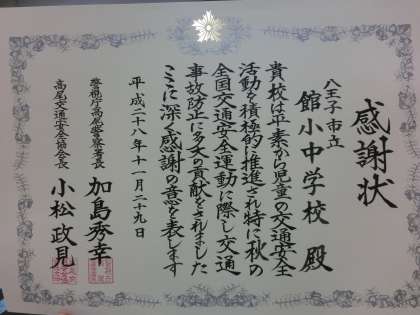 感謝状
八王子市立
館小中学校 殿
貴校は平素から児童の交通安全
活動を積極的に推進され特に秋の
全国交通安全運動に際し交通
事故防止に多大の貢献をされました
ここに深く感謝の意を表します
平成二十八年十一月二十九日
警視庁高尾警察署長 加島秀幸
高尾交通安全協会会長 小松政見